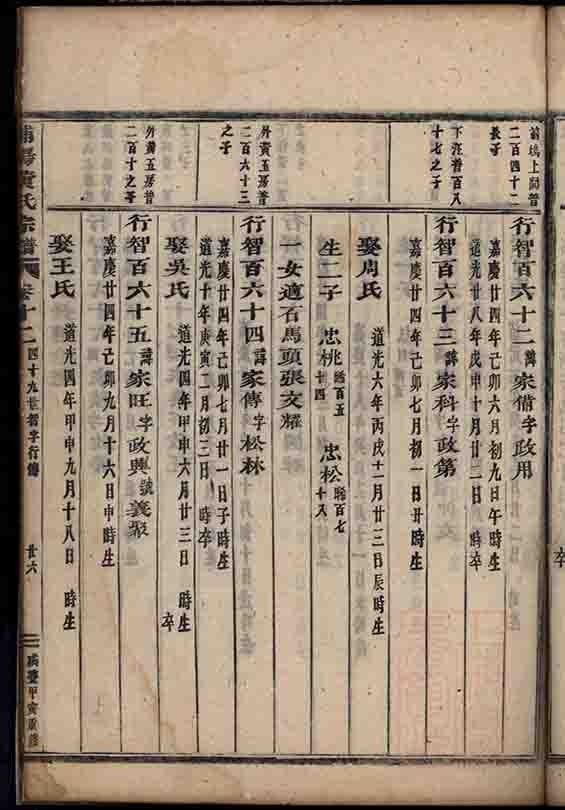 埔塢上閣普
二百四十二
長子
行智百六十二諱家備字政用
嘉慶廿四年己卯六月初九日午時生
道光廿八年戊申十月廿二日　時卒
下沅普百八
十七之子
行智百六十三諱家科字政第
嘉慶廿四年己卯七月初一日丑時生
娶周氏　道光六年丙戌十一月廿三日辰時生
生二子　忠桃皓百五十四　忠松皓百七十八
一女適石馬頭張文耀
外黃五房普
二百六十三
之子
行智百六十四諱家傳字松林
嘉慶廿四年己卯七月廿一日子時生
道光十年庚寅二月初三日　時卒
娶吳氏　道光四年甲申六月廿三日　時生卒
外黃五房普
二百十之子
行智百六十五諱家旺字政興號義聚
嘉慶廿四年己卯九月十六日申時生
娶王氏　道光四年甲申九月十八日　時生
浦陽黃氏宗譜　卷十二　四十九世智字行傳　廿六　咸豐甲寅重修
卒